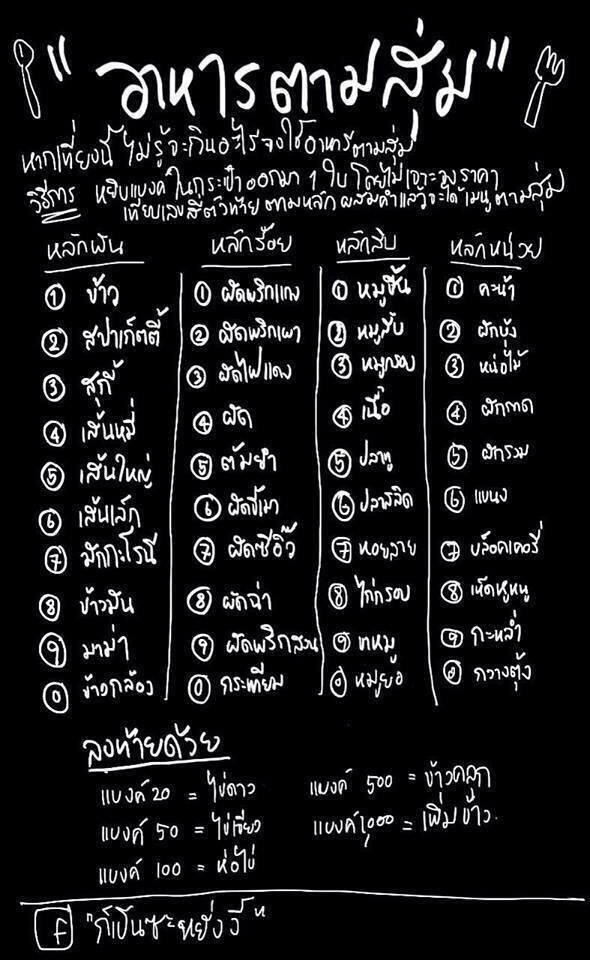 "อาหารตามสุ่ม"
หากเที่ยงนี้ ไม่รู้จะกินอะไร จงใช้อาหารตามสุ่ม
วิธีการ หยิบแบงค์ในกระเป๋าออกมา 1 ใบ โดยไม่เจาะจงราคา
เทียบเลขสี่ตัวท้าย ตามหลัก ผสมคำแล้วจะได้เมนูตามสุ่ม
หลักพัน
① ข้าว
② สปาเก็ตตี้
③ สุกี้
④ เส้นหมี่
⑤ เส้นใหญ่
⑥ เส้นเล็ก
⑦ มักกะโรนี
⑧ ข้าวมัน
⑨ มาม่า
⓪ ข้าวกล้อง
หลักร้อย
① ผัดพริกแกง
② ผัดพริกเผา
③ ผัดไฟแดง
④ ผัด
⑤ ต้มยำ
⑥ ผัดขี้เมา
⑦ ผัดซีอิ๊ว
⑧ ผัดฉ่า
⑨ ผัดพริกสด
⓪ กระเทียม
หลักสิบ
① หมูชิ้น
② หมูสับ
③ หมูกรอบ
④ เนื้อ
⑤ ปลาทู
⑥ ปลาสลิด
⑦ หอยลาย
⑧ ไก่กรอบ
⑨ ขาหมู
⓪ หมูยอ
หลักหน่วย
① คะน้า
② ผักบุ้ง
③ หน่อไม้
④ ผักกาด
⑤ ผักรวม
⑥ แขนง
⑦ บล็อคเคอรี่
⑧ เห็ดหูหนู
⑨ กะหล่ำ
⓪ กวางตุ้ง
ลงท้ายด้วย
แบงค์ 20 = ไข่ดาว
แบงค์ 50 = ไข่เจียว
แบงค์ 100 = ห่อไข่
แบงค์ 500 = ข้าวคลุก
แบงค์ 1,000 = เพิ่มข้าว
f "ก็เป็นซะหยั่งงี้"